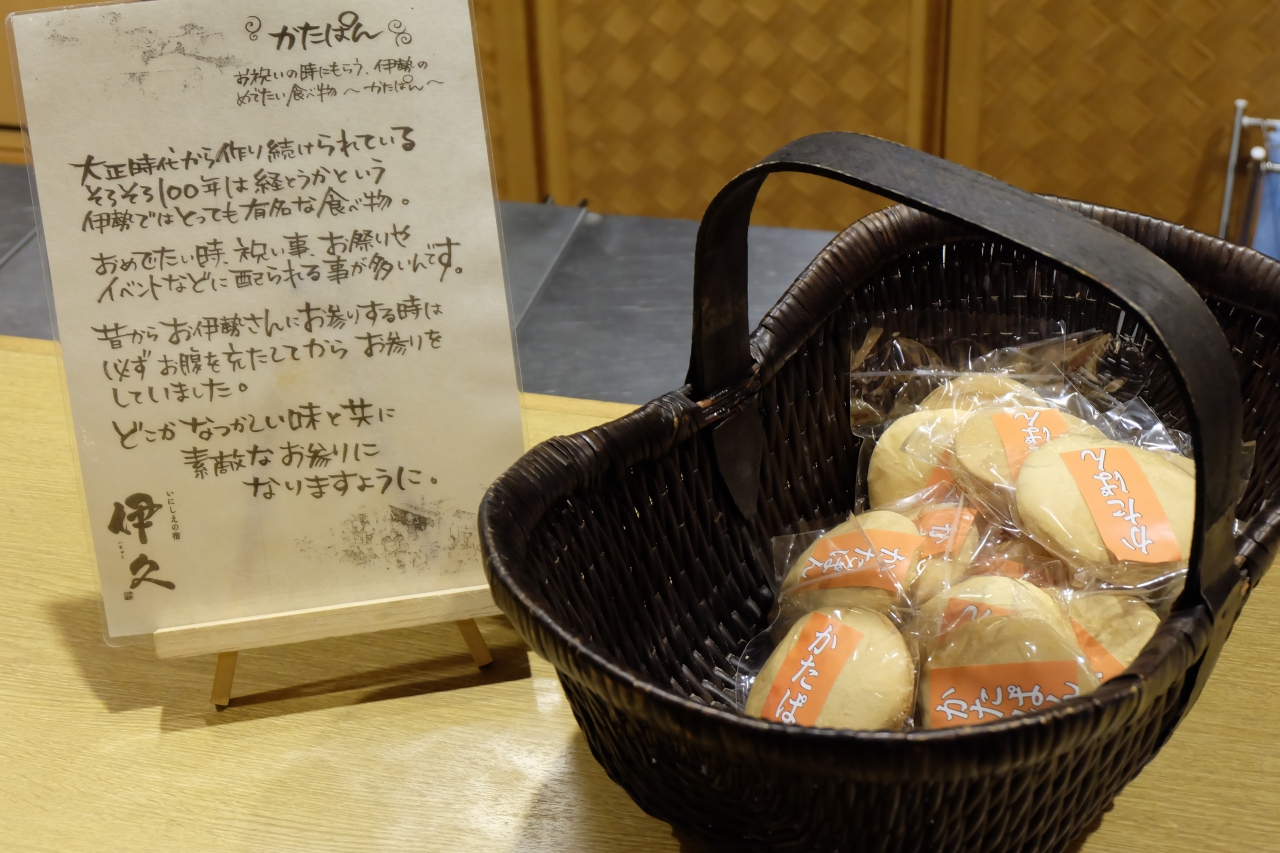 かたぱん
お祝いの時にもらう、伊勢の
めでたい食べ物 ～かたぱん～
大正時代から作り続けられている
そろそろ100年は経とうかという
伊勢ではとっても有名な食べ物。
おめでたい時、祝い事、お祭りや
イベントなどに配られる事が多いんです。
昔からお伊勢さんにお参りする時は
必ずお腹を充たしてからお参りを
していました。
どこかなつかしい味と共に
素敵なお参りに
なりますように。
いにしえの宿
伊久
かたぱん
かたぱん
かたぱん
かたぱ
かたぱん